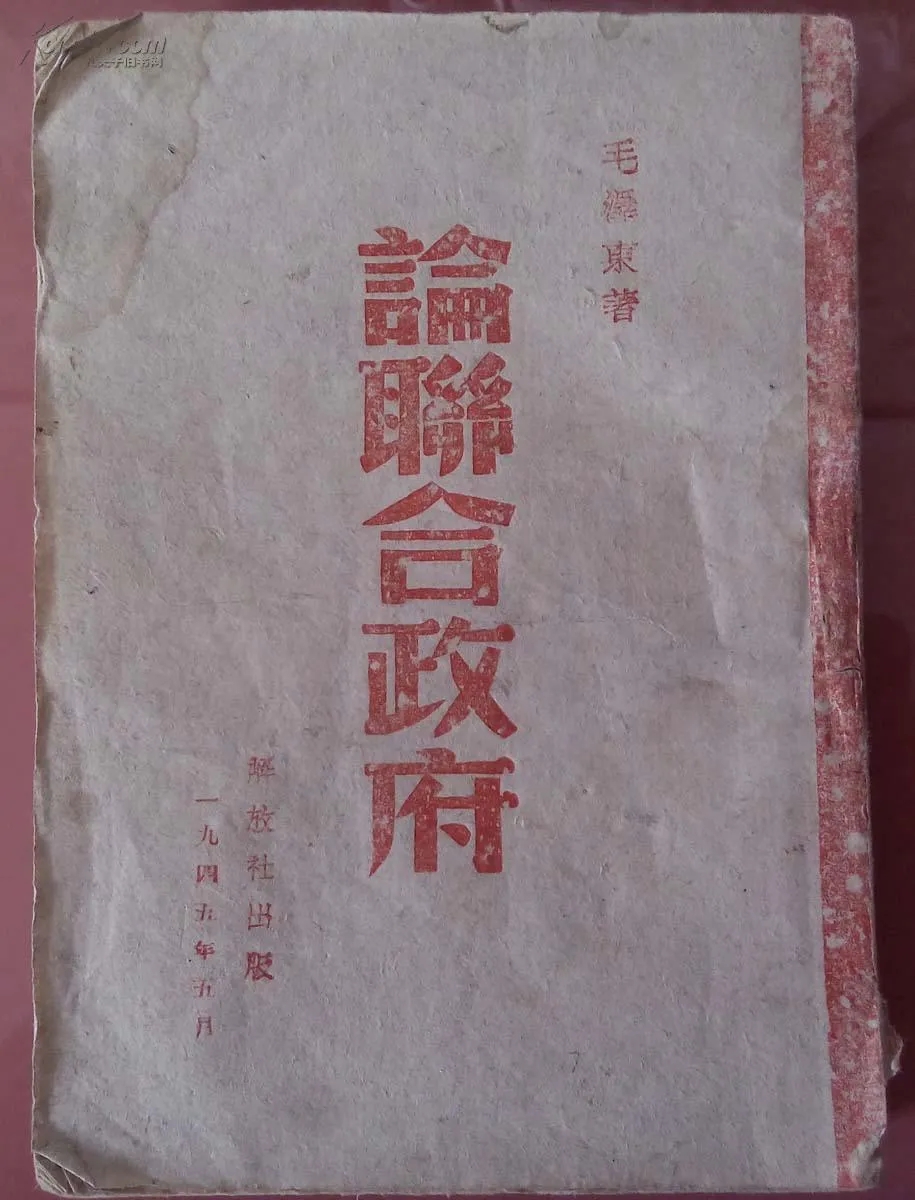 毛澤東著
論聯合政府
解放社出版
一九四五年五月